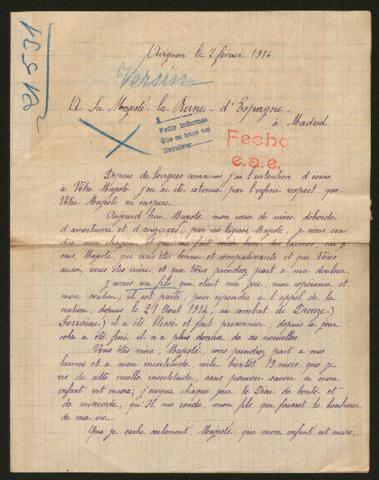 Avignon le 2 février 1916
Versin
A Sa Majesté la Reine d'Espagne
à Madrid
Pedir informes
Que se hace así
Devolver
Fecho
e.a.e.
Depuis de longues semaines, j'ai l'intention d'écrire
à Votre Majesté, j'en ai été retenue par l'infini respect que
Votre Majesté m'inspire.
Aujourd'hui Majesté mon cœur de mère déborde
d'amertume et d'angoisses, par ces lignes, Majesté, je viens vous
dire mon chagrin et qui me fait verser bien des larmes, car je
sais, Majesté, que vous êtes bonne et compatissante et que Vous
aussi, vous êtes mère, et que Vous prendrez part à ma douleur.
J'avais un fils, qui était ma joie, mon espérance et
mon soutien, il est parti, pour répondre à l'appel de la
nation, depuis le 21 Août 1914, au combat de Dieuze
(Lorraine) il a été blessé et fait prisonnier, depuis ce jour
cela a été fini, il n'a plus donné de ses nouvelles.
Vous êtes mère, Majesté, vous prendrez part à mes
larmes et à mon incertitude, voilà bientôt 19 mois que je
vis de cette cruelle incertitude, sans pouvoir savoir si mon
enfant vit encore; j'invoque chaque jour le Dieu de bonté et
de miséricorde, qu'Il me rende, mon fils qui faisait le bonheur
de ma vie.
Que je sache seulement, Majesté, que mon enfant est vivant,